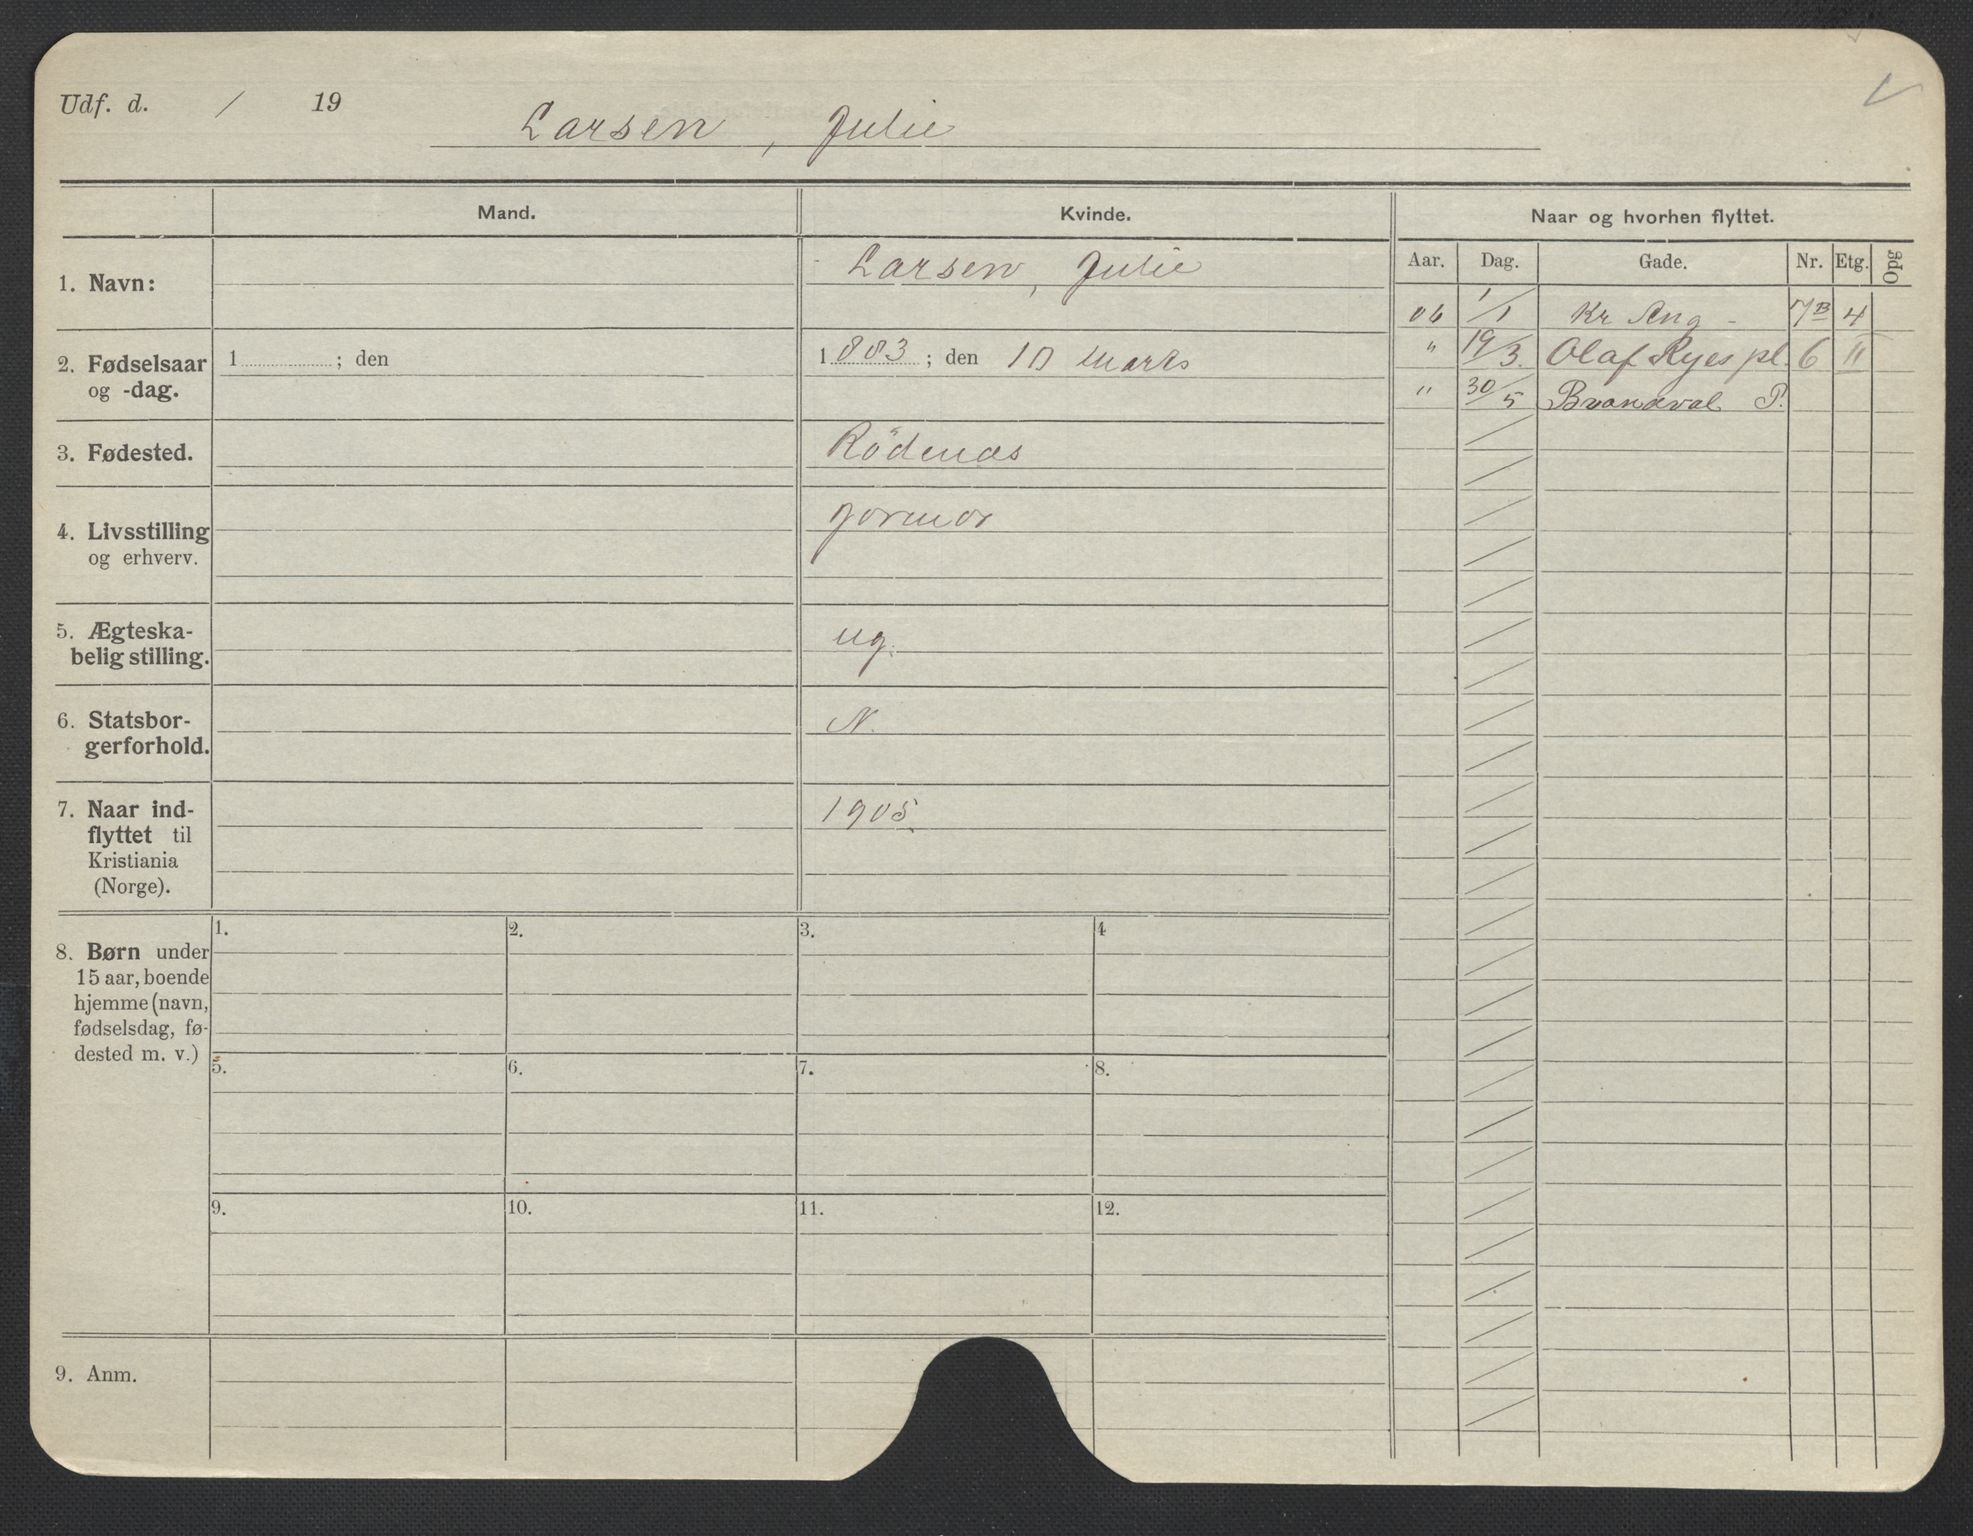 Udf. d. / 19
Larsen, Julie
Mand.
Kvinde.
Naar og hvorhen flyttet.
Aar. Dag. Gade. Nr. Etg. Opg
1. Navn:
Larsen, Julie
06 1/1 Kr Aug - 7B 4
2. Fødselsaar
og -dag.
1 ; den
1883 ; den 10 Marts
" 19/3. Olaf Ryes pl. 6 11
" 30/5 Brandval P.
3. Fødested.
Rödenæs
4. Livsstilling
og erhverv.
jormor
5. Ægteska-
belig stilling.
ug.
6. Statsbor-
gerforhold.
N.
7. Naar ind-
flyttet til
Kristiania
(Norge).
1905.
8. Børn under
15 aar, boende
hjemme (navn,
fødselsdag, fø-
dested m. v.)
1. 2. 3. 4
5. 6. 7. 8.
9. 10. 11. 12.
9. Anm.